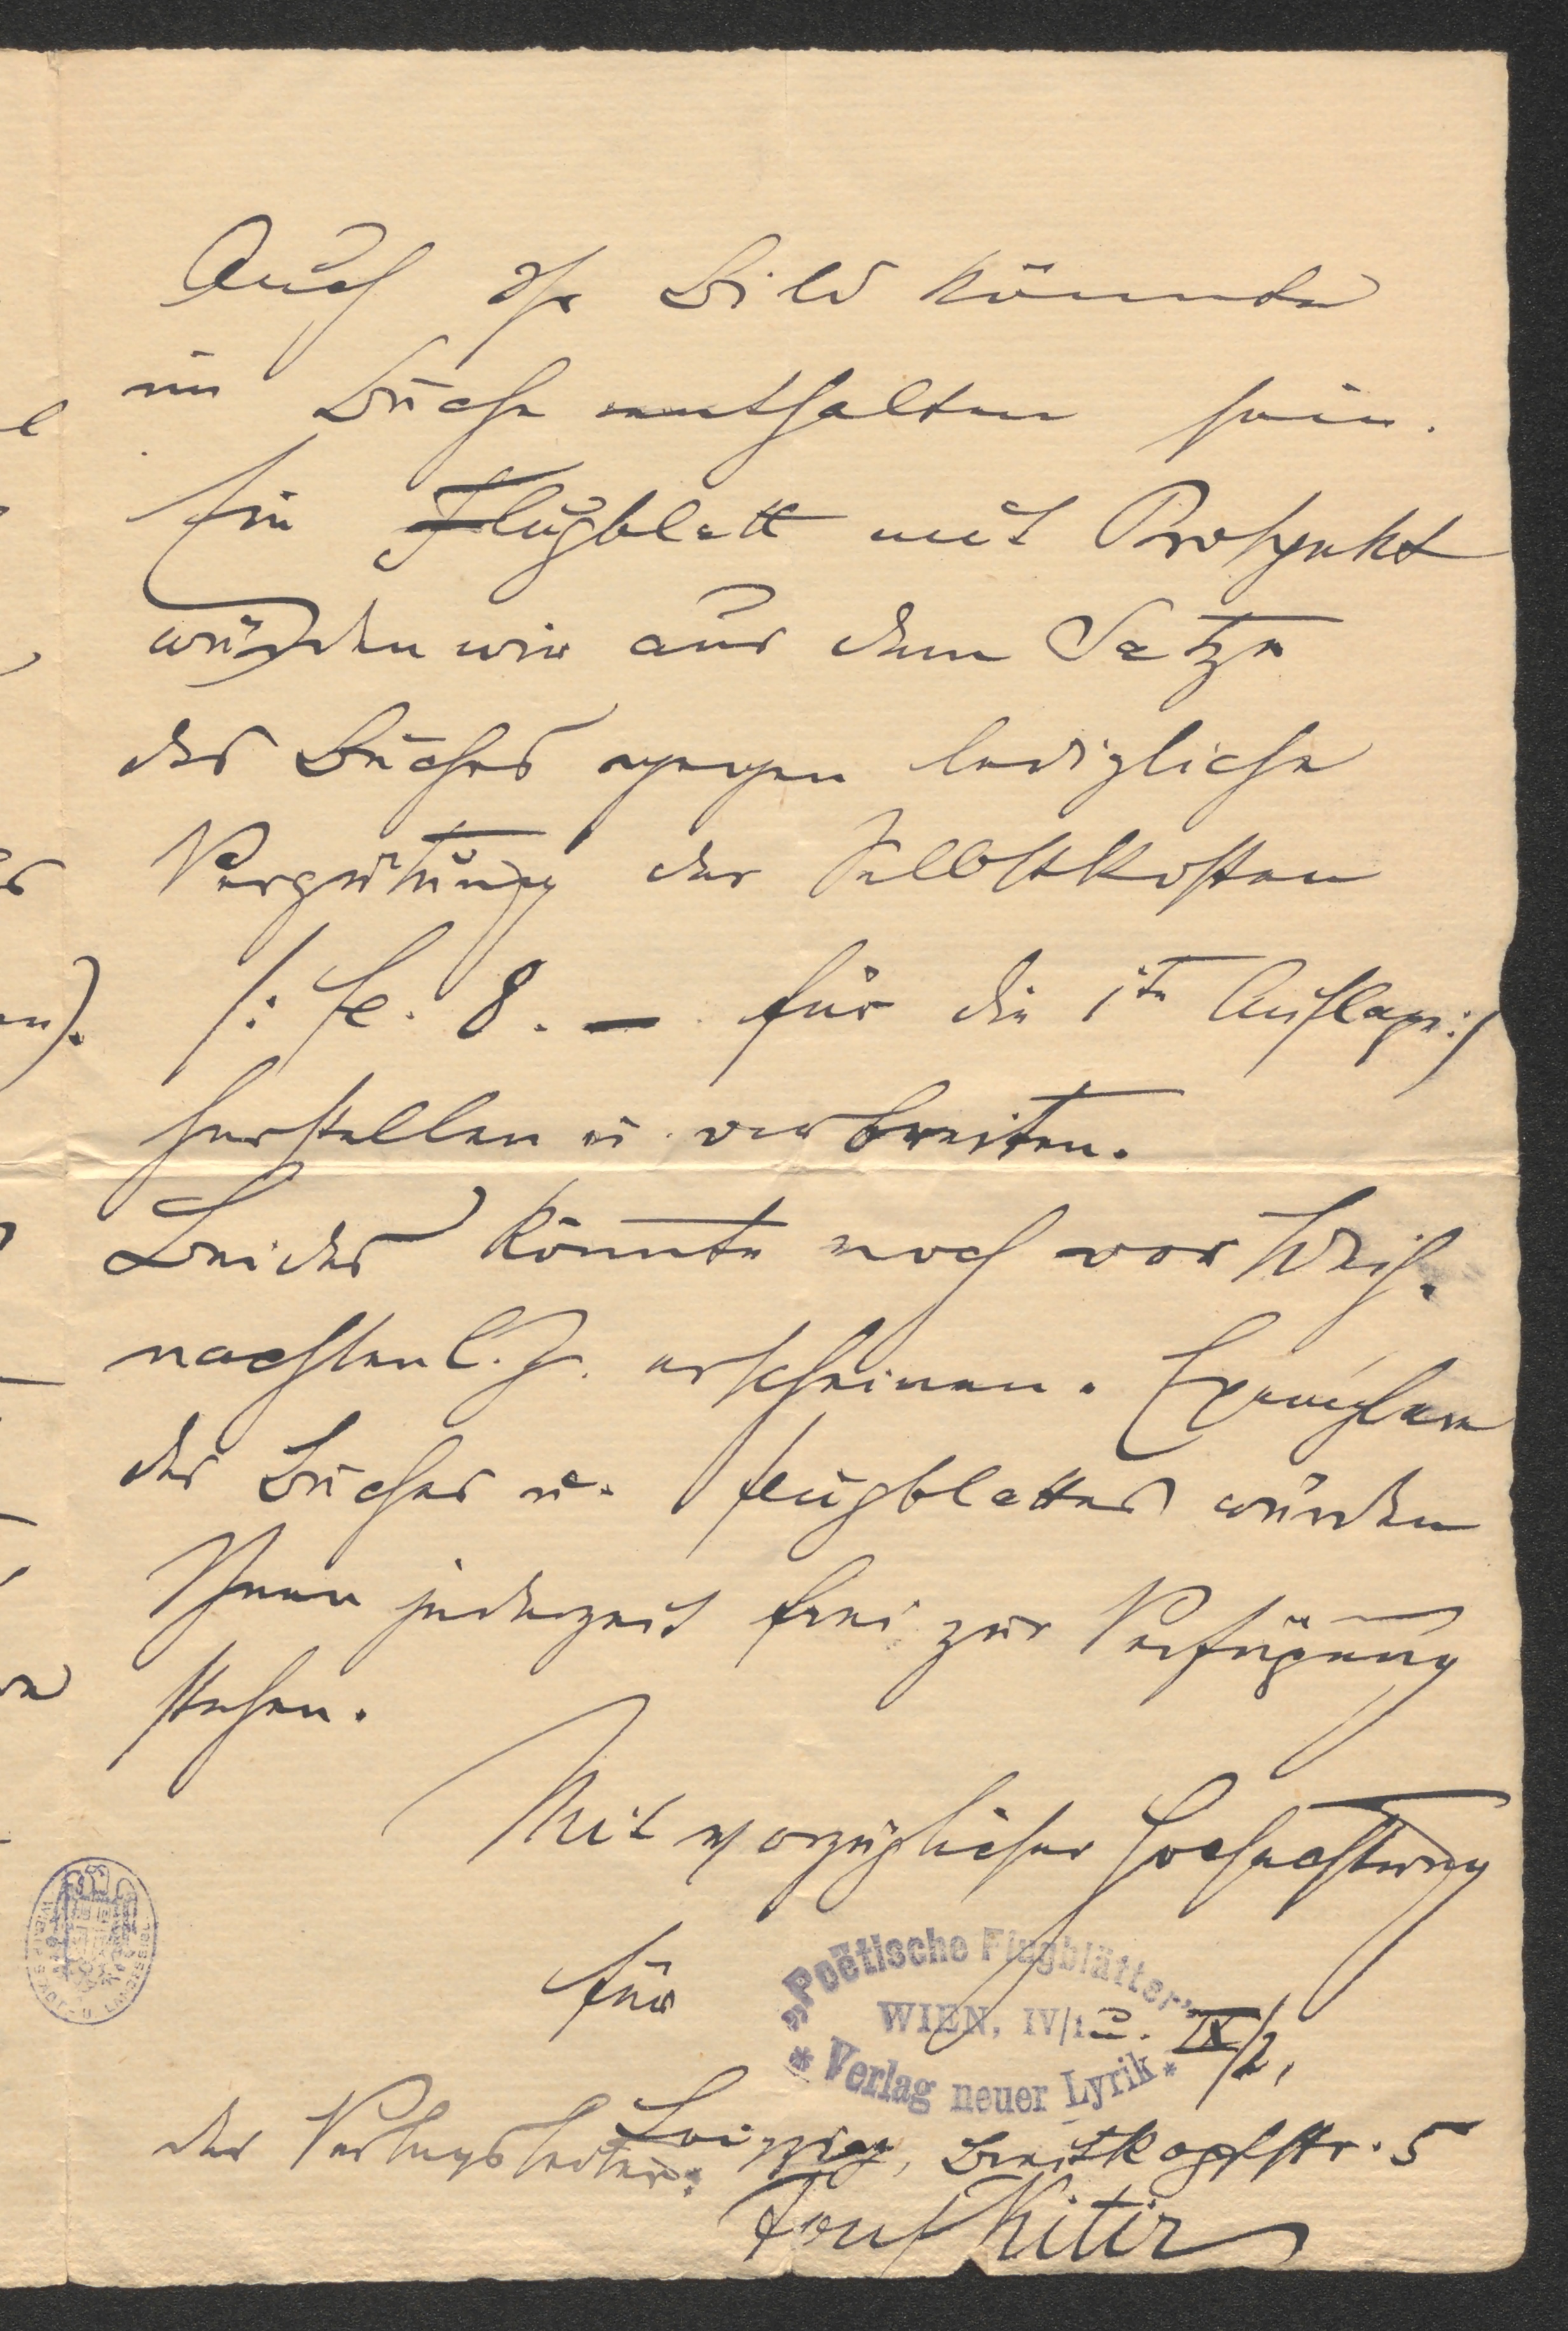 Auch Ihr Bild könnte
im Buche enthalten sein.
Ein Flugblatt mit Prospekt
würden wir aus dem Satze
des Buches gegen ledigliche
Vergütung der Selbstkosten
/: fl. 8. — für die 1te Auflage :/
herstellen u. verbreiten.
Beides könnte noch vor Weih-
nachten l. J. erscheinen. Exemplare
des Buches u. Flugblattes würden
Ihnen jederzeit frei zur Verfügung
stehen.
Mit vorzüglicher Hochachtung
für
„Poëtische Flugblätter“
WIEN, IV/1 u. IX/2,
* Verlag neuer Lyrik *
Leipzig, Breitkopfstr. 5
der Verlagsleiter:
Josef Kitir